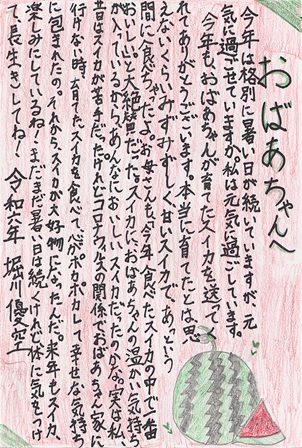 おばあちゃんへ
今年は格別に暑い日が続いていますが、元
気に過ごせていますか。私は元気に過ごしています。
今年も、おばあちゃんが育てたスイカを送って
くれてありがとうございます。本当に育てたとは思
えないくらいみずみずしく甘いスイカで、あっという
間に食べちゃったよ。お母さんも、今年食べたスイカの中で一番
おいしいと大絶賛だった。スイカに、おばあちゃんの温かい気持ち
が入っているから、あんなにおいしいスイカだったのかな。実は私、
昔はスイカが苦手だった。けれどコロナウイルスの関係でおばあちゃん家に
行けない時、送ってきたスイカを食べて、心がポカポカして幸せな気持ち
に包まれたの。それから、スイカが大好物になったんだ。来年もスイカ
楽しみにしているね。まだまだ暑い日は続くけれど体に気をつけ
て、長生きしてね! 令和六年 堀川優空